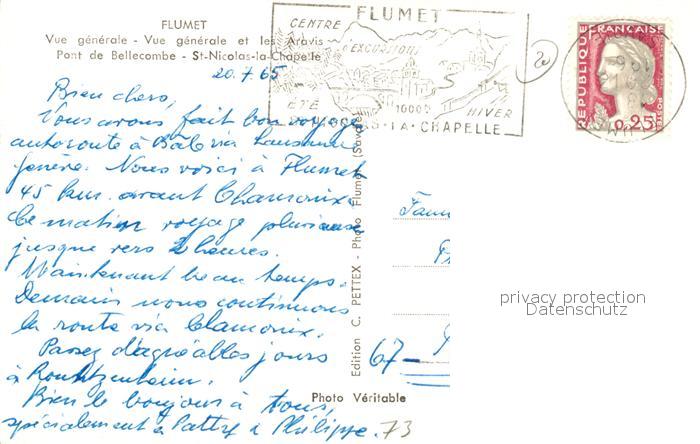 FLUMET
Vue générale - Vue générale et les Aravis
Pont de Bellecombe - St-Nicolas-la-Chapelle
FLUMET
CENTRE
EXCURSIONS
ÉTÉ
1000
HIVER
LA - CHAPELLE
REPUBLIQUE FRANÇAISE
POSTES
0,25
20
20.7.65
Bien chers,
Vous avons fait bon voyage
autoroute à Bâle via Lausanne
Genève. Nous voici à Flumet
45 km. avant Chamonix.
Ce matin voyage pluvieuse
jusque vers 2 heures.
Maintenant beau temps.
Demain nous continuons
la route via Chamonix.
Passez d'agréables jours
à
Bien le bonjour à tous,
spécialement à Patty & Philippe.
73
Edition C. PETTEX - Photo Flumet (Savoie)
67-
Photo Véritable
privacy protection
Datenschutz